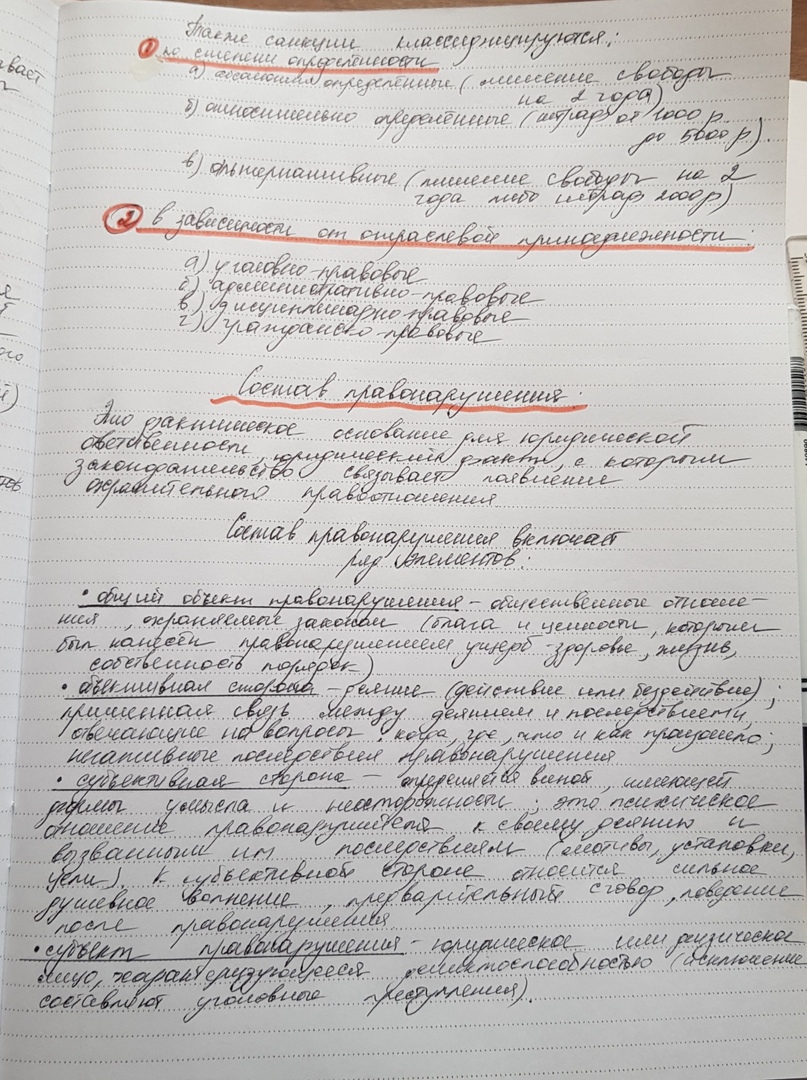 Также санкции классифицируются:
① по степени определённости
а) абсолютно определённые (лишение свободы
на 2 года)
б) относительно определённые (штраф от 1000 р.
до 5000 р).
в) альтернативные (лишение свободы на 2
года либо штраф 2000р)
② в зависимости от отраслевой принадлежности:
а) уголовно-правовые
б) административно-правовые
в) дисциплинарно-правовые
г) гражданско-правовые
Состав правонарушения:
Это фактическое основание для юридической
ответственности, юридический факт, с которым
законодательство связывает появление
охранительного правоотношения
Состав правонарушения включает
ряд элементов:
• общий объект правонарушения - общественные отноше-
ния, охраняемые законом (блага и ценности, которым
был нанесён правонарушением ущерб - здоровье, жизнь,
собственность порядок)
• объективная сторона - деяние (действие или бездействие);
причинная связь между деянием и последствиями,
отвечающие на вопросы: когда, где, что и как произошло;
негативные последствия правонарушения
• субъективная сторона - определяется виной, имеющей
формы умысла и неосторожности; это психическое
отношение правонарушителя к своему деянию и
вызванным им последствиям (мотивы, установки,
цели). К субъективной стороне относится сильное
душевное волнение, предварительный сговор, поведение
после правонарушения
• субъект правонарушения - юридическое или физическое
лицо, характеризующееся деликтоспособностью (исключение
составляют уголовные преступления).